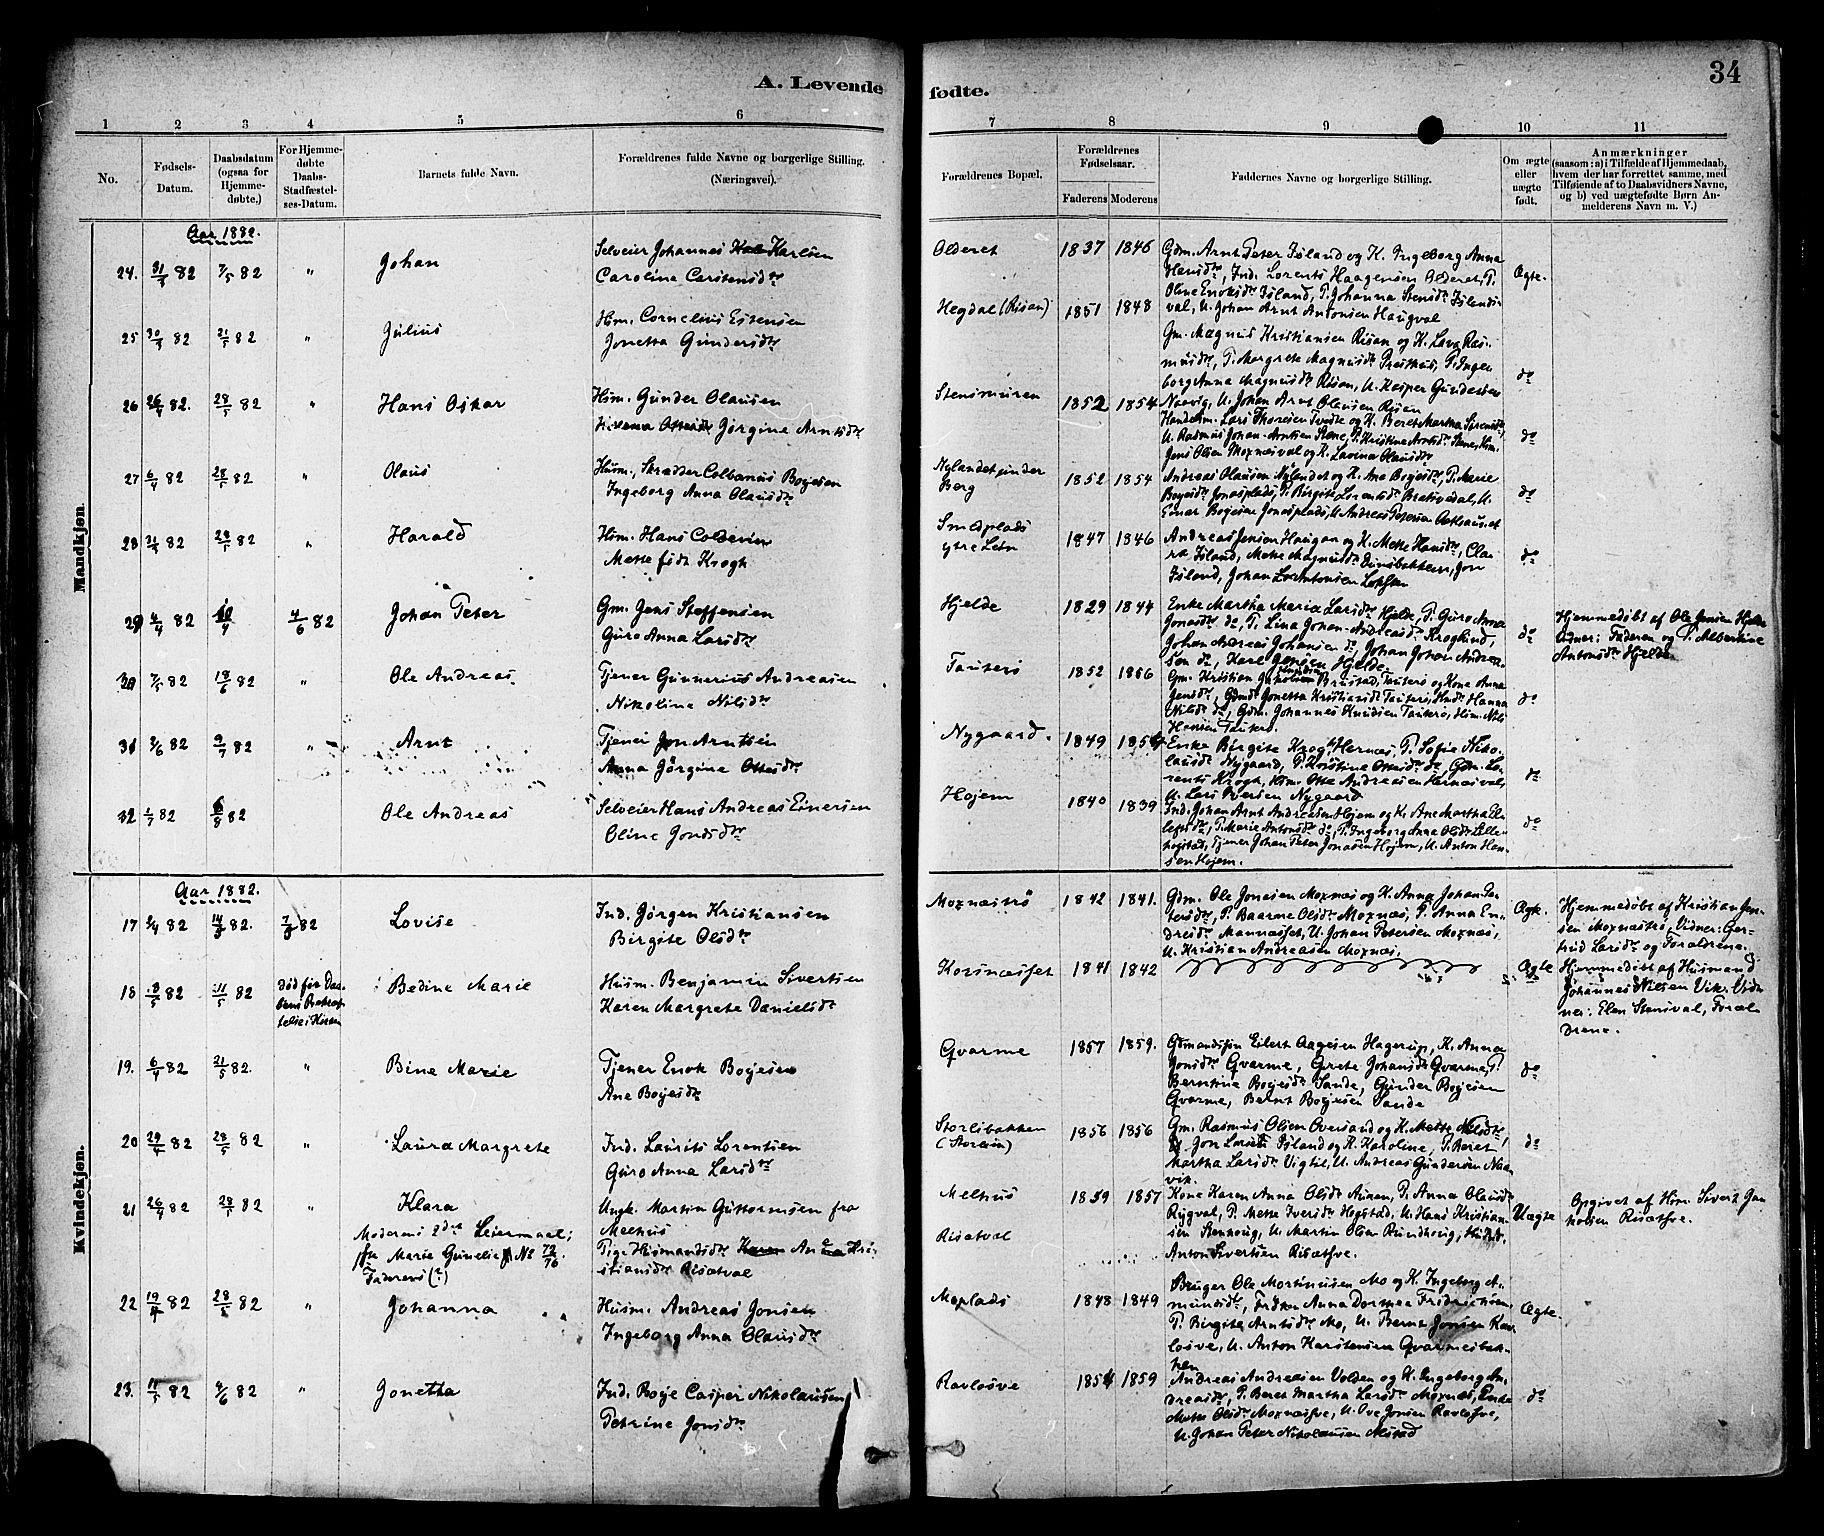 34
A. Levende
fødte.
1 2 3 4 5 6
7 8 9 10 11
No.
Fødsels-
Datum.
Daabsdatum
(ogsaa for
Hjemme-
døbte.)
For Hjemme-
døbte
Daabs-
Stadfæstel-
ses-Datum.
Barnets fulde Navn.
Forældrenes fulde Navne og borgerlige Stilling.
(Næringsvei).
Forældrenes Bopæl.
Forældrenes
Fødselsaar.
Faderens Moderens
Faddernes Navne og borgerlige Stilling.
Om ægte
eller
uægte
født.
Anmærkninger
(saasom: a) i Tilfælde af Hjemmedaab,
hvem der har forrettet samme, med
Tilføiende af to Daabsvidners Navne,
og b) ved uægtefødte Børn An-
melderens Navn m. V.)
Mandkjøn.
Aar 1882.
24. 31/3 82 7/5 82 " Johan
Selveier Johannes Karlsen
Carolina Carstensdtr
Olderet 1837 1846
Gdm. Arnt Peter Island og K. Ingeborg Anna
Hansdtr, Ind. Lorents Haagensen Olderet, P.
Oline Enoksdtr Island, P. Johanna Stensdtr Islands-
val, U. Johan Arnt Antonsen Haugval
Ægte.
25 30/3 82 21/5 82 " Julius
Hm. Cornelius Estensen
Jonetta Gundersdtr
Hegdal (Risan) 1851 1848
Gm. Magnus Kristiansen Risan og K. Lava Ras-
musdtr, P. Margrete Magnusdtr Presthus, P. Inge-
borg Anna Magnusdtr Risan, U. Kasper Gundersen
Naavig, U. Johan Arnt Olausen Risan
do
26 26/4 82. 28/5 82 " Hans Oskar
Hsm. Gunder Olausen
Jørgine Arntsdtr
Stensmuren 1852 1854
Handelsm. Lars Thoresen Tvedte og K. Beret Martha Sørensdtr,
U. Rasmus Johan Arntsen Stene, P. Kristine Arntsdtr Stene, Hm.
Jens Olsen Moxnæsval og K. Lavina Olausdtr
do
27 6/4 82 28/5 82 " Olaus
Husm. Skrædder Colbanus Bojesen
Ingeborg Anna Olausdtr
Nylandet under
Berg
1852 1854
Andreas Olausen Nylandet og K. Ane Bojesdtr, P. Marie
Bojesdtr Jonasplads, P. Birgite Lorentsdtr Brativadal, U.
Einar Bojesen Jonasplads, U. Andreas Petersen
do
28 21/3 82 28/5 82 " Harald
Hsm. Hans Coldevin
Mette født Krogh
Smedplads
ytre Lein
1847 1846
Andreas Jensen Haugan og K. Mette Hansdtr, Cla-
ra Island, Mette Magnusdtr Dunsbakken, Jon
Island, Johan Lorntsen
do
29 6/4 82 10/4 4/6 82 Johan Peter
Gm. Jens Steffensen
Guro Anna Larsdtr
Hjelde 1829 1844
Enke Martha Maria Larsdtr Hjelde, P. Guro Anna
Jonasdtr do, P. Lina Johan-Andreasdtr Kroglund,
Johan Andreas Johansen do, Johan Johan Andrea-
sen do, Karl Jensen Hjelde
do
Hjemmedøbt af Ole Jensen Hjelde
Vidner: Faderen og P. Albertine
Antonsdtr Hjelde.
30 7/5 82 18/6 82 Ole Andreas.
Tjener Gunnerius Andreasen
Nikolina Nilsdtr
Tauterø 1852 1856
Gm. Kristian Brustad, Tauterø og Kone Anna
Jensdtr, Gdmd. Jonetta Kristiansdtr Tauterø, Hsdtr Hanna
Nilsdtr do, Gdm. Johannes Knudsen Tauterø, Hsm. Nils
Hansen Tauterø.
do
31 2/6 82 9/7 82 " Arnt
Tjener Jon Arntsen
Anna Jørgine Ottesdtr
Nygaard. 1849 1854
Enke Birgite Krogh Hernes, P. Sofie Niko-
lausdtr Nygaard, P. Kristine Ottesdtr do, Gdm. Lo-
rents Krogh, Hsm. Otte Andreasen Hernesval,
U. Lars Iversen Nygaard
do
32 1/7 82 6/8 82 Ole Andreas
Selveier Hans Andreas Einersen
Oline Jonsdtr
Hojem 1840 1839
Ind. Johan Arnt Andreasen Hojem og K. Ane Martha El-
lefsdtr, P. Marie Antonsdtr do, P. Ingeborg Anna Olsdtr Lille-
hogstad, Tjener Johan Peter Jonasen Hojem, U. Anton Han-
sen Hojem.
do
Kvindekjøn.
Aar 1882.
17 2/4 82 14/3 82. 7/5 82 Lovise
Ind. Jørgen Kristiansen
Birgite Olsdtr
Moxnæstrø 1842 1841.
Gdm. Ole Jonesen Moxnæs og K. Anna Johan Pe-
tersdtr, P. Baarme Olsdtr Moxnæs, P. Anna En-
dreidtr Mannæsset, U. Johan Petersen Moxnæs,
U. Kristian Andreasen Moxnæs.
Ægte.
Hjemmedøbt af Kristian Jen-
sen Moxnæstrø, Vidner: Ger-
trud Larsdtr og Forældrene.
18 3/5 82 11/5 82 død før Daa-
bens Bekræf-
telse i Kirken
Bedine Marie
Husm. Benjamin Sivertsen
Karen Margrete Danielsdtr
Korsnæsset 1841 1842
Ægte
Hjemmedøbt af Husmand
Johannes Nilsen Vik. Vid-
ner: Elen Stensval, Foræl-
drene.
19. 6/4 82 21/5 82. " Bine Marie
Tjener Enok Bojesen
Ane Bojesdtr
Qvarme 1857 1859.
Gdmandssøn Eilert Aagesen Hagerup, K. Anna
Jonsdtr Qvarme, Grete Johansdtr Qvarme, P.
Berntine Bojesdtr Sande, Gunder Bojesen
Qvarme, Bernt Bojesen Sande
do
20 29/4 82 28/5 82 " Laura Margrete
Ind. Laurits Lorentsen
Guro Anna Larsdtr
Storlibakken
(Storlein)
1856 1856
Gm. Rasmus Olsen Oversand og K. Mette Nilsdtr,
Jon Larsen Island og K. Karoline, P. Beret
Martha Larsdtr Vigtil, U. Andreas Gundersen Naa-
vik.
do
21 26/4 82 28/5 82 " Klara
Moderens 2det Leiermaal;
Marie Gunelie No 72/76.
Faderens (?)
Ungk. Martin Guttormsen fra
Melhus
Pige Husmandsdtr Anna Kri-
stiansdtr Risætval
Melhus 1859 1857
Risætval
Kone Karen Anna Olsdtr Aunan, P. Anna Olausdtr
Rygval, P. Mette Iversdtr Hegstad, U. Hans Kristian-
sen Stenhoug, U. Martin Olsen Rundhoug,
Anton Sivertsen Risætsve.
Uægte
Opgivet af Hsm. Sivert Ja-
kobsen Risætsve.
22 19/4 82 28/5 82 " Johanna
Husm. Andreas Jonsen
Ingeborg Anna Olausdtr
Moplads 1848 1849
Bruger Ole Mortinusen Mo og K. Ingeborg A-
mundsdtr, Anna Dormea Fridrichsen,
P. Birgite Arntsdtr Mo, U. Bernt Jonsen Rav-
losve, U. Anton Karstensen Qvarmesbak-
ken
Ægte.
23. 11/5 82 4/6 82 " Jonetta
Ind. Boje Casper Nikolausen
Petrine Jonsdtr
Ravlosve 1854 1859
Andreas Andreasen Volden og K. Ingeborg An-
dreasdtr, P. Beret Martha Larsdtr Moxnæs, Enke
Mette Olsdtr Moxnæsve, U. Ove Jonsen Ravlosve,
U. Johan Peter Nikolausen Alstad
do